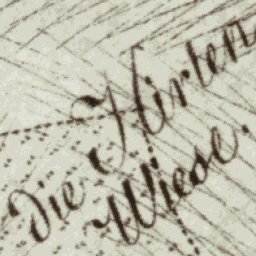 die Hirten
Wiese.